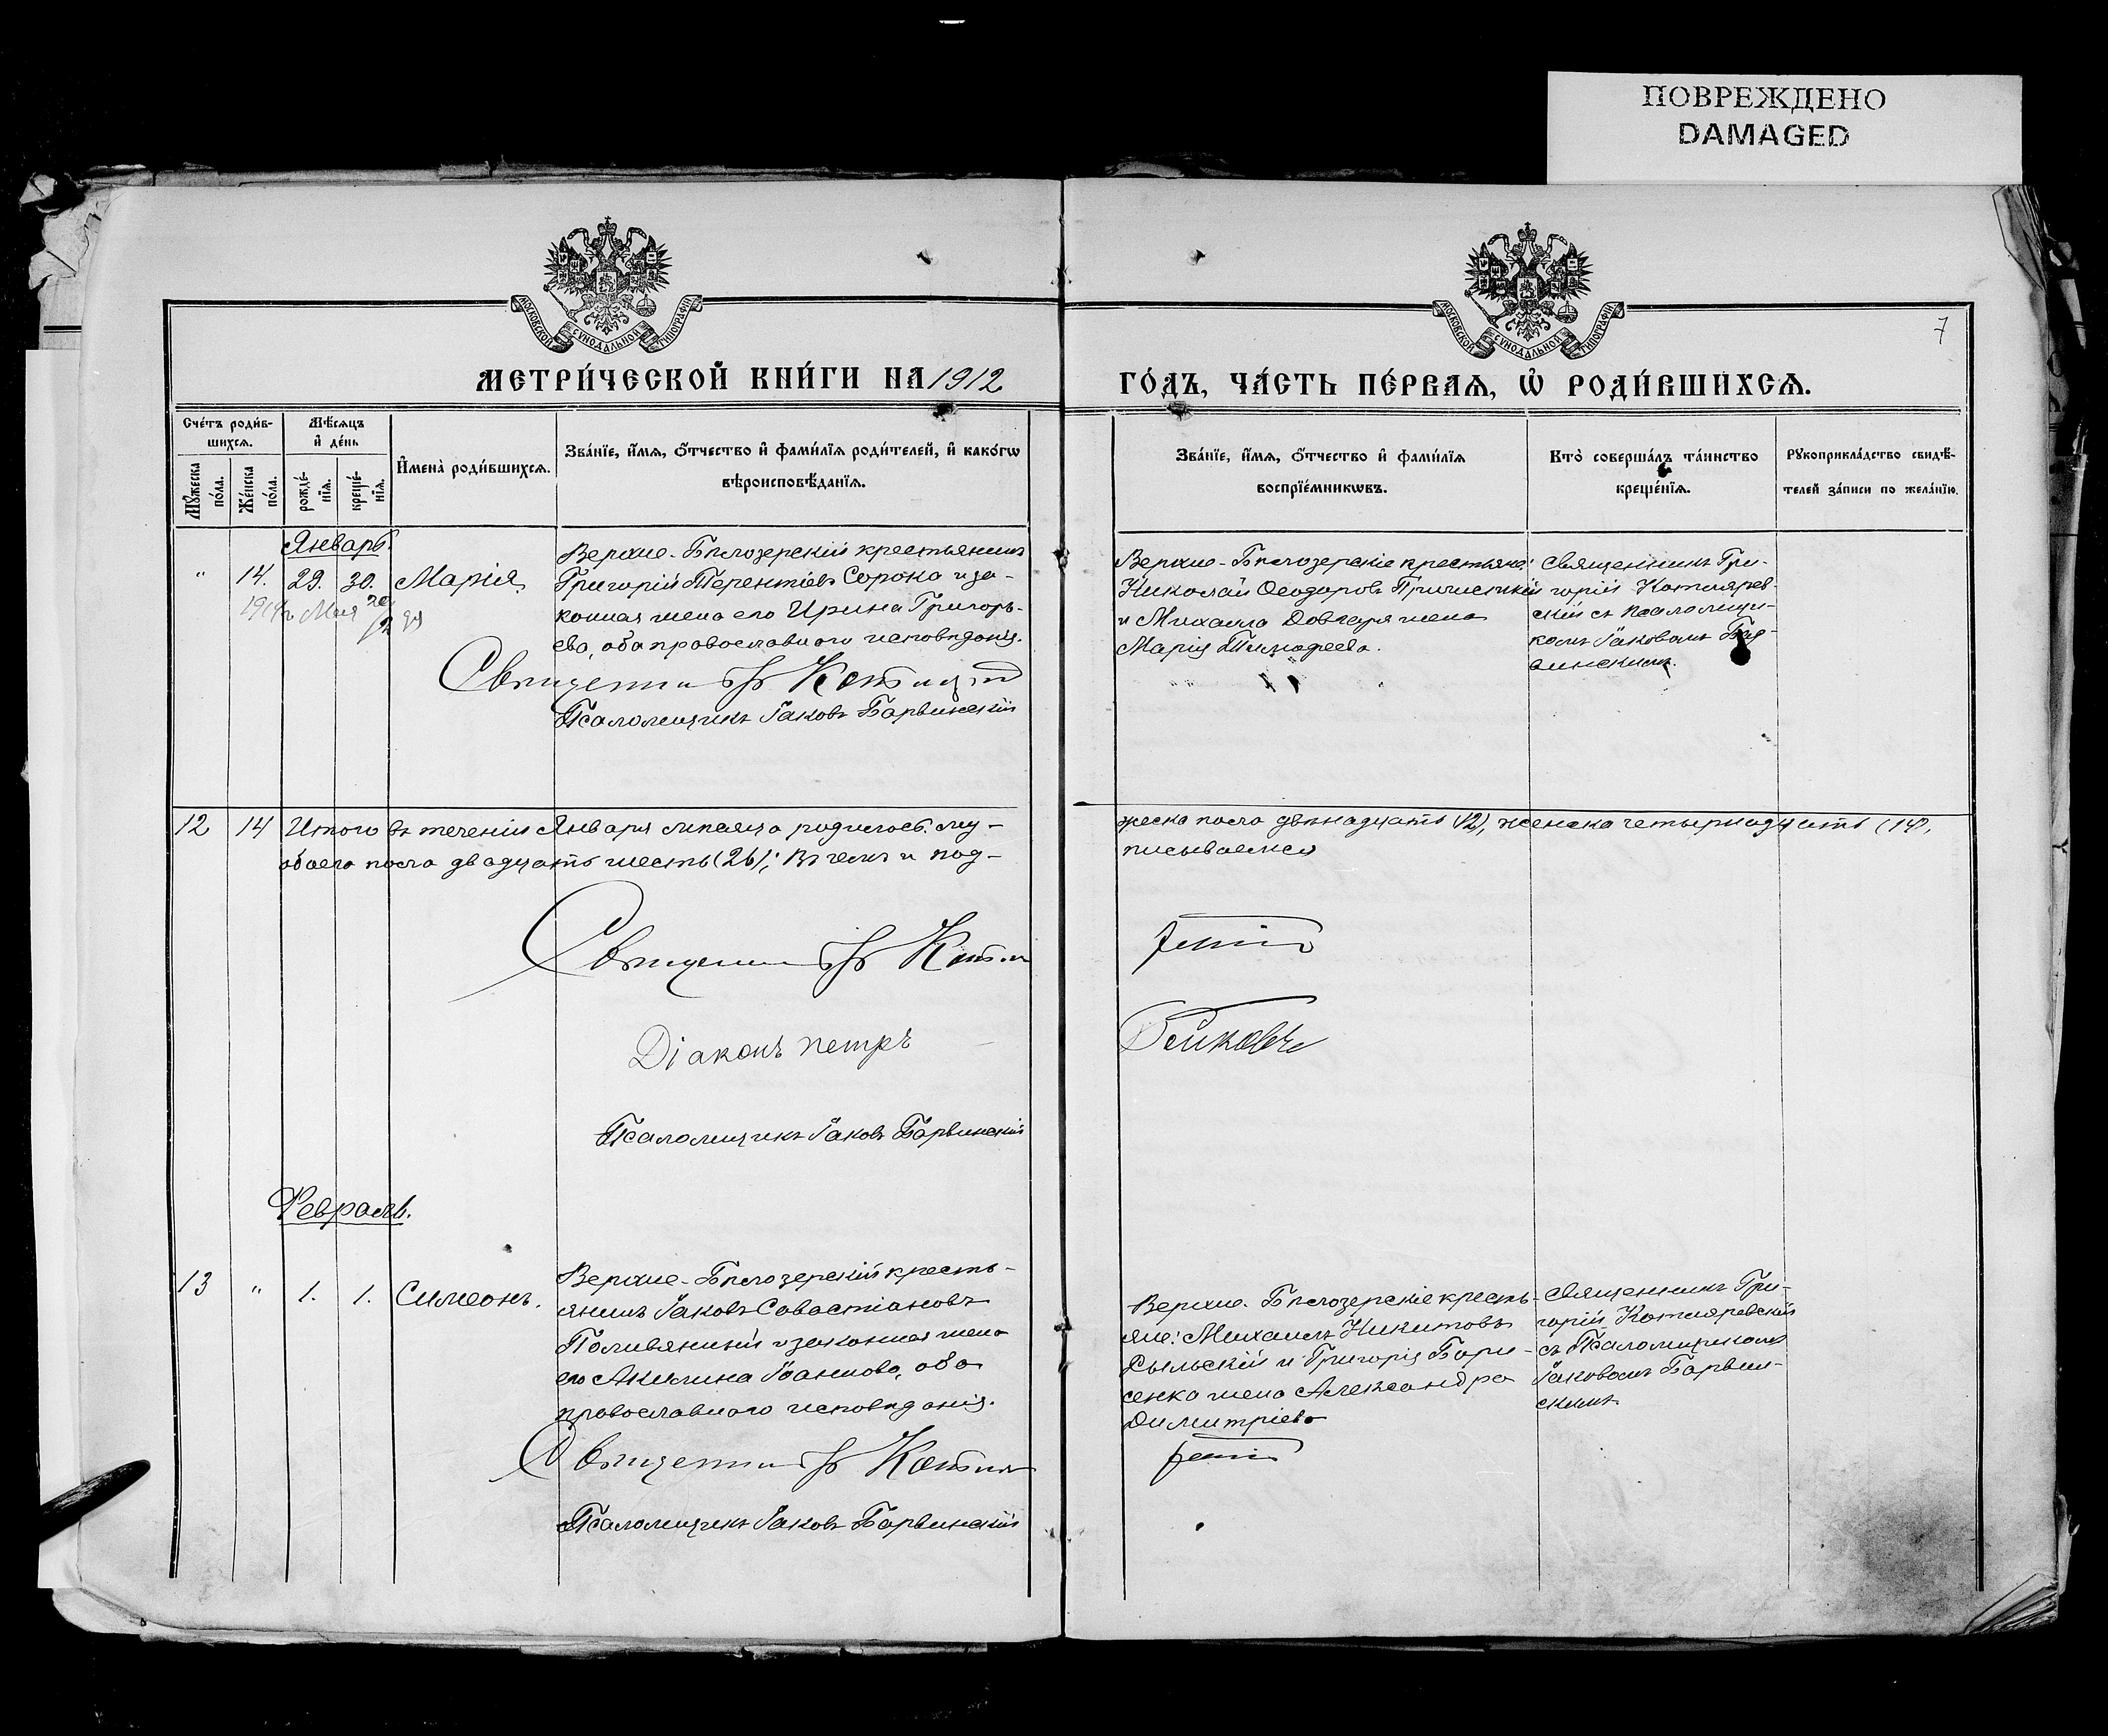 ПОВРЕЖДЕНО
DAMAGED
МОСКОВСКОЙ СѴНОДАЛЬНОЙ ТИПОГРАФІИ
МОСКОВСКОЙ СѴНОДАЛЬНОЙ ТИПОГРАФІИ
7
МЕТРИ́ЧЕСКОЙ КНИ́ГИ НА 1912
ГО́ДЪ, ЧА́СТЬ ПЕ́РВАѦ, Ѡ҆ РОДИ́ВШИХСѦ.
Сче́тъ роди́в-
шихсѧ.
Мꙋ́жеска
по́ла.
Же́нска
по́ла.
Мѣ́сѧцъ
и҆ де́нь
рожде́-
нїѧ.
креще́-
нїѧ.
И҆мена̀ роди́вшихсѧ.
Зва́нїе, и҆́мѧ, ѻ҆́тчество и҆ фами́лїѧ роди́телей, и҆ како́гѡ
вѣроисповѣ́данїѧ.
Зва́нїе, и҆́мѧ, ѻ҆́тчество и҆ фами́лїѧ
воспрїе́мникѡвъ.
Кто̀ соверша́лъ та́инство
креще́нїѧ.
Рꙋкоприкла́дство свидѣ́-
телей за́писи по жела́нїю.
Январь.
" 14. 29. 30. Марія
1914 г. Мая
Верхне-Бѣлозерскій крестьянинъ
Григорій Терентіевъ Сорока и за-
конная жена его Ирина Григорь-
ева, оба православнаго исповѣданія.
Священникъ
Псаломщикъ Іаковъ Барвинскій
Верхне-Бѣлозерскіе крестьяне:
Николай Ѳеодоровъ
и Михаила Довгаря жена
Марія Тимоѳеева.
Священникъ Гри-
горій Котлярев-
скій съ псаломщи-
комъ Іаковомъ Бар-
винскимъ.
12 14 Итого въ теченіи Января мѣсяца родилось: му-
жеска пола двѣнадцать (12), женска четырнадцать (14),
обоего пола двадцать шесть (26); въ чемъ и под-
писываемся
Священникъ
Діаконъ Петръ
Псаломщикъ Іаковъ Барвинскій
Февраль.
13 " 1. 1. Симеонъ.
Верхне-Бѣлозерскій кресть-
янинъ Іаковъ Савастіановъ
Поливяный и законная жена
его Акилина Іоаннова, оба
православнаго исповѣданія.
Священникъ
Псаломщикъ Іаковъ Барвинскій
Верхне-Бѣлозерскіе кресть-
яне: Михаилъ Никитовъ
Рыльскій и Григорія Бори-
сенка жена Александра
Димитріева
Священникъ Гри-
горій Котляревскій
съ Псаломщикомъ
Іаковомъ Барвин-
скимъ